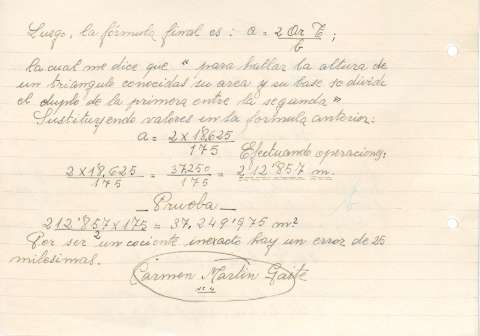 Luego, la fórmula final es: a = 2 Ar T / b ;
la cual me dice que "para hallar la altura de
un triangulo conocidas su area y su base se divide
el duplo de la primera entre la segunda"
Sustituyendo valores en la formula anterior:
a = 2 x 18,625 / 175
Efectuando operaciones:
2 x 18,625 / 175 = 37250 / 175 = 212'857 m.
Prueba
212'857 x 175 / 2 = 37.249'975 m²
Por ser un cociente inexacto hay un error de 25
milesimas.
Carmen Martin Gaite
nº 4